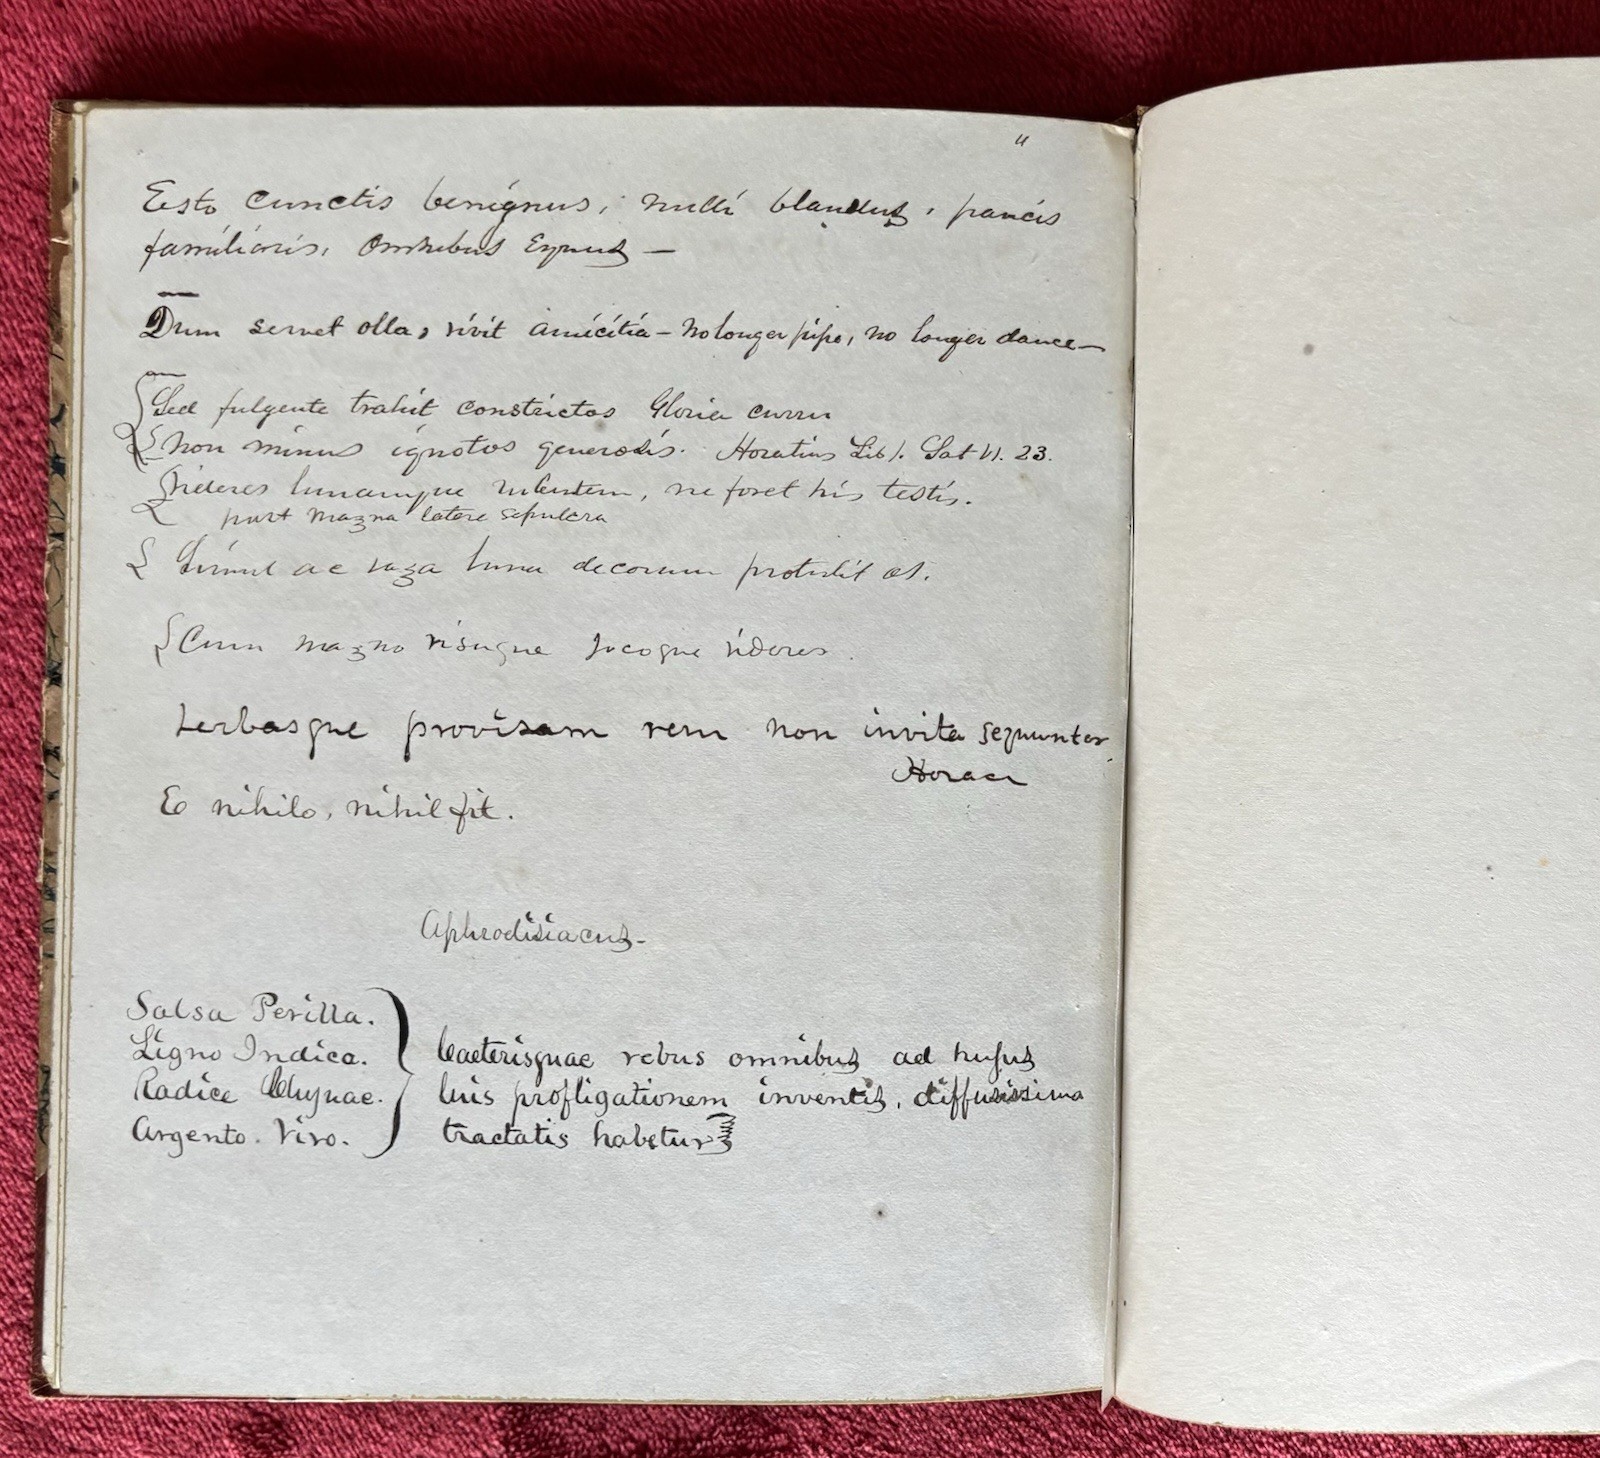 "
Esto cunctis benignus, nulli blandus, paucis
familiaris, omnibus Equus —
Dum servet olla, vivit amicitia — No longer pipe, no longer dance —
Sed fulgente trahit constrictos Gloria curru
non minus ignotos generosis. Horatius Lib 1. Sat VI. 23.
Videres lunamque rubentem, ne foret his testis.
post magna latere sepulcra
Simul ac vaga luna decorum protulit os.
Cum magno risuque jocoque videres.
Verbasque provisam rem non invita sequuntur
Horace
E nihilo, nihil fit.
Aphrodisiacus.
Salsa Perilla.
Ligno Indica.
Radice Chynae.
Argento. Vivo.
Caeterisquae rebus omnibus ad hujus
luis profligationem inventis, diffusissima
tractatis habetur